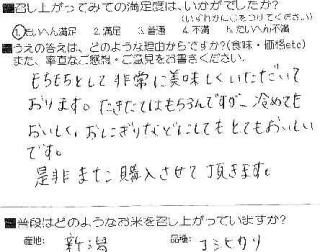 ■召し上がってみての満足度は、いかがでしたか?
(いずれかに○をつけてください)
①たいへん満足 2.満足 3.普通 4.不満 5.たいへん不満
■うえの答えは、どのような理由からですか?(食味・価格etc)
また、率直なご感想・ご意見をお書きください。
もちもちとして非常に美味しくいただいて
おります。たきたてはもちろんですが、冷めても
おいしく、おにぎりなどにしてもとてもおいしい
です。
是非また購入させて頂きます。
■普段はどのようなお米を召し上がっていますか?
産地: 新潟 品種: コシヒカリ